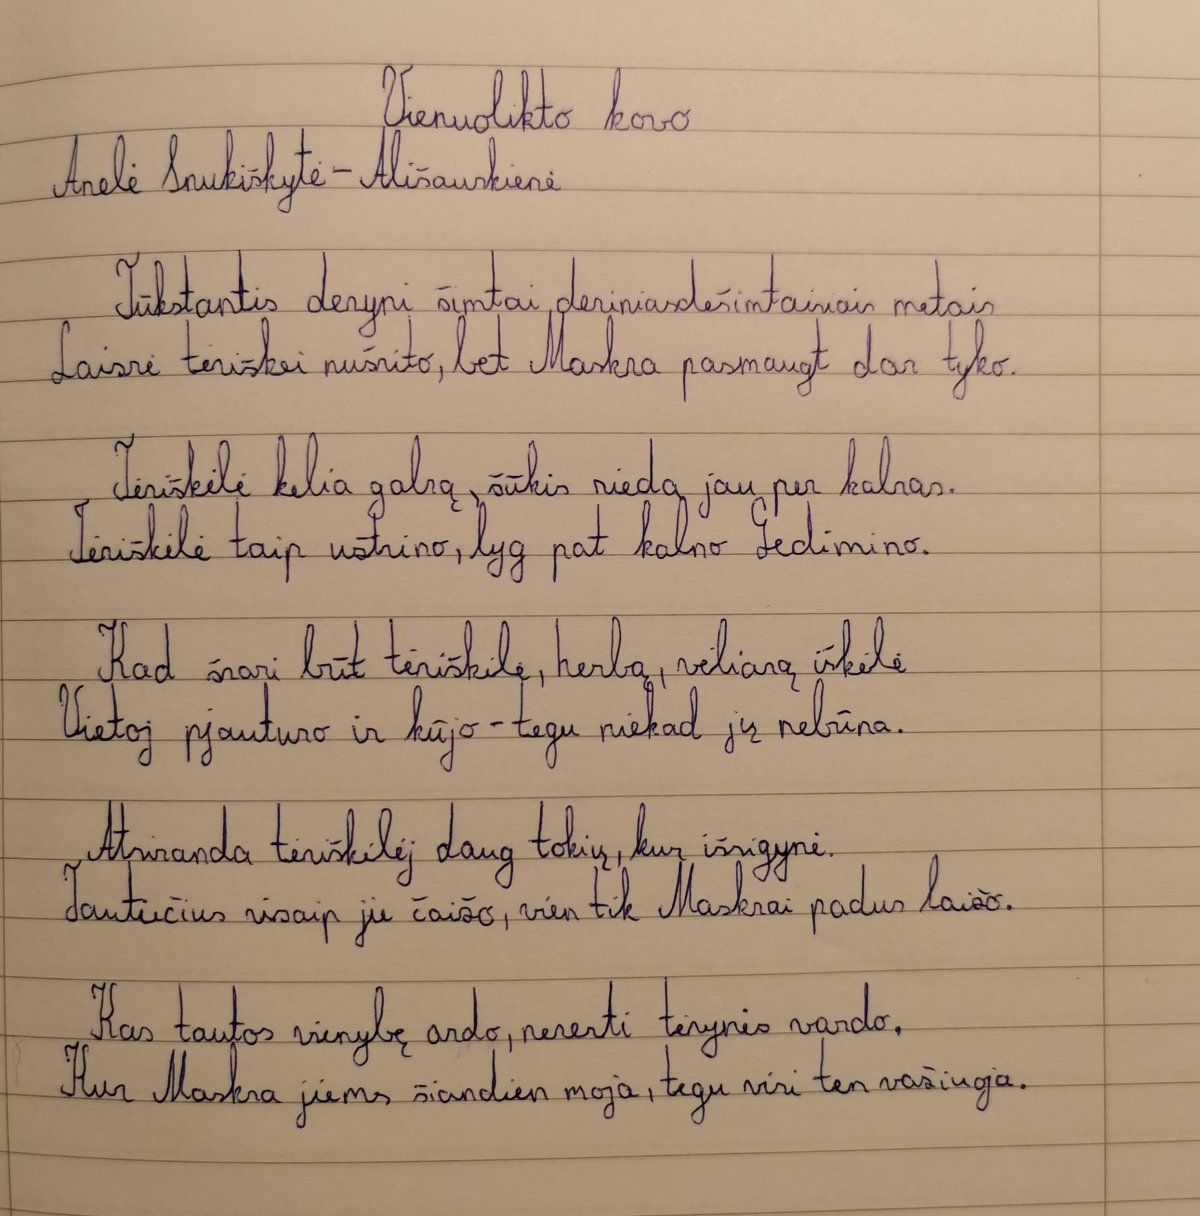 Vienuolikto kovo
Anelė Snukiškytė-Ališauskienė
Tūkstantis devyni šimtai devyniasdešimtaisiais metais
Laisvė tėviškei nušvito, bet Maskva pasmaugt dar tyko.
Tėviškėlė kelia galvą, šūkis rieda jau per kalvas.
Tėviškėlė taip ištvino, lyg pat kalno Gedimino.
Kad švari būt tėviškėlę, herbą, vėliavą iškėlė
Vietoj pjautuvo ir kūjo - tegu niekad jų nebūna.
Atsiranda tėviškėlėj daug tokių, kur išsigynė.
Tautiečius visaip jie čaižo, vien tik Maskvai padus laižo.
Kas tautos vienybę ardo, neverti tėvynės vardo.
Kur Maskva jiems šiandien moja, tegu visi ten važiuoja.